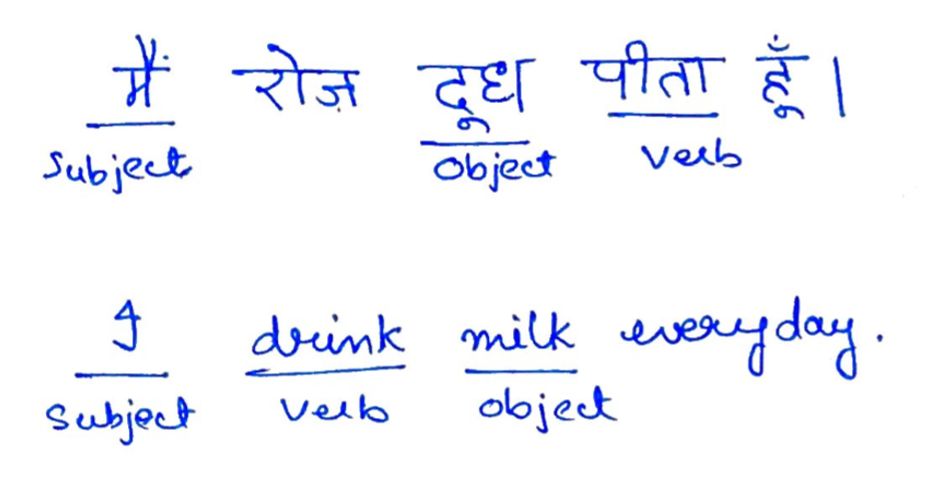 मैं रोज़ दूध पीता हूँ।
Subject Object Verb
I drink milk everyday.
Subject Verb object